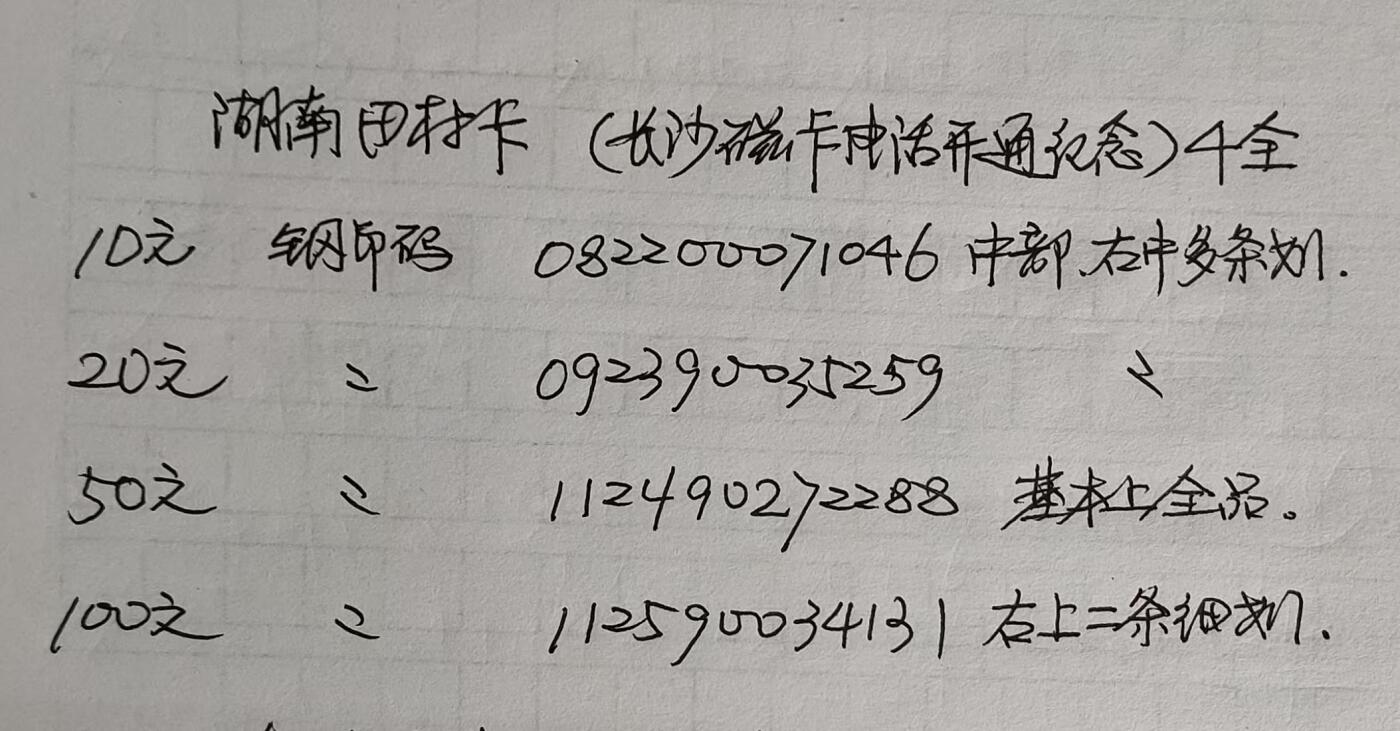 湖南田村卡 (长沙磁卡电话开通纪念) 4全
10元 钢印码 082200071046 中部、右中多条划.
20元 〃 092390035259 〃
50元 〃 112490272288 基本上全品。
100元 〃 112590034131 右上二条细划.